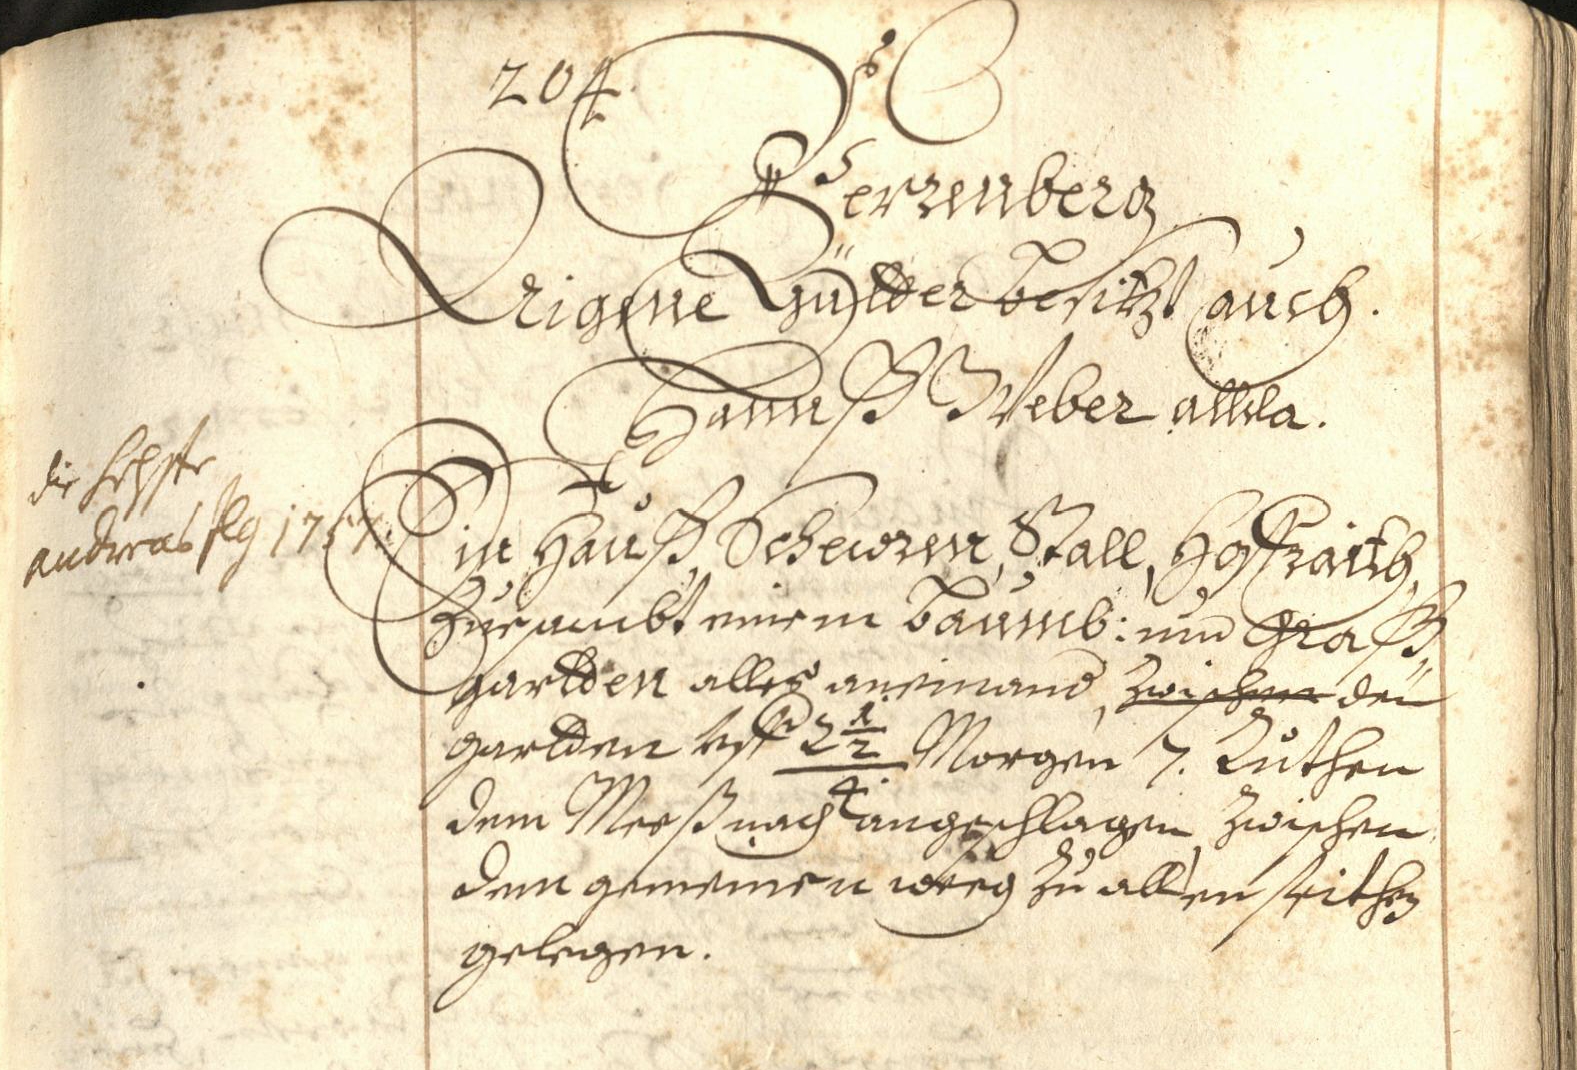 204.
Herrenberg
Aigene Gütter besitzt auch
Hannß Weber allda.
die helfte
andreas ilg 1757.
Ein Hauß, Schewren, Stall, Hoffraith,
zusambt einem Baumb: und Graß-
gartten alles aneinand, zwischen den
gartten uff 2 1/2 / 4. Morgen 7. Ruthen
dem Meeß nach angeschlagen, zwischen
dem gemeinen weeg zu allen seithen
gelegen.